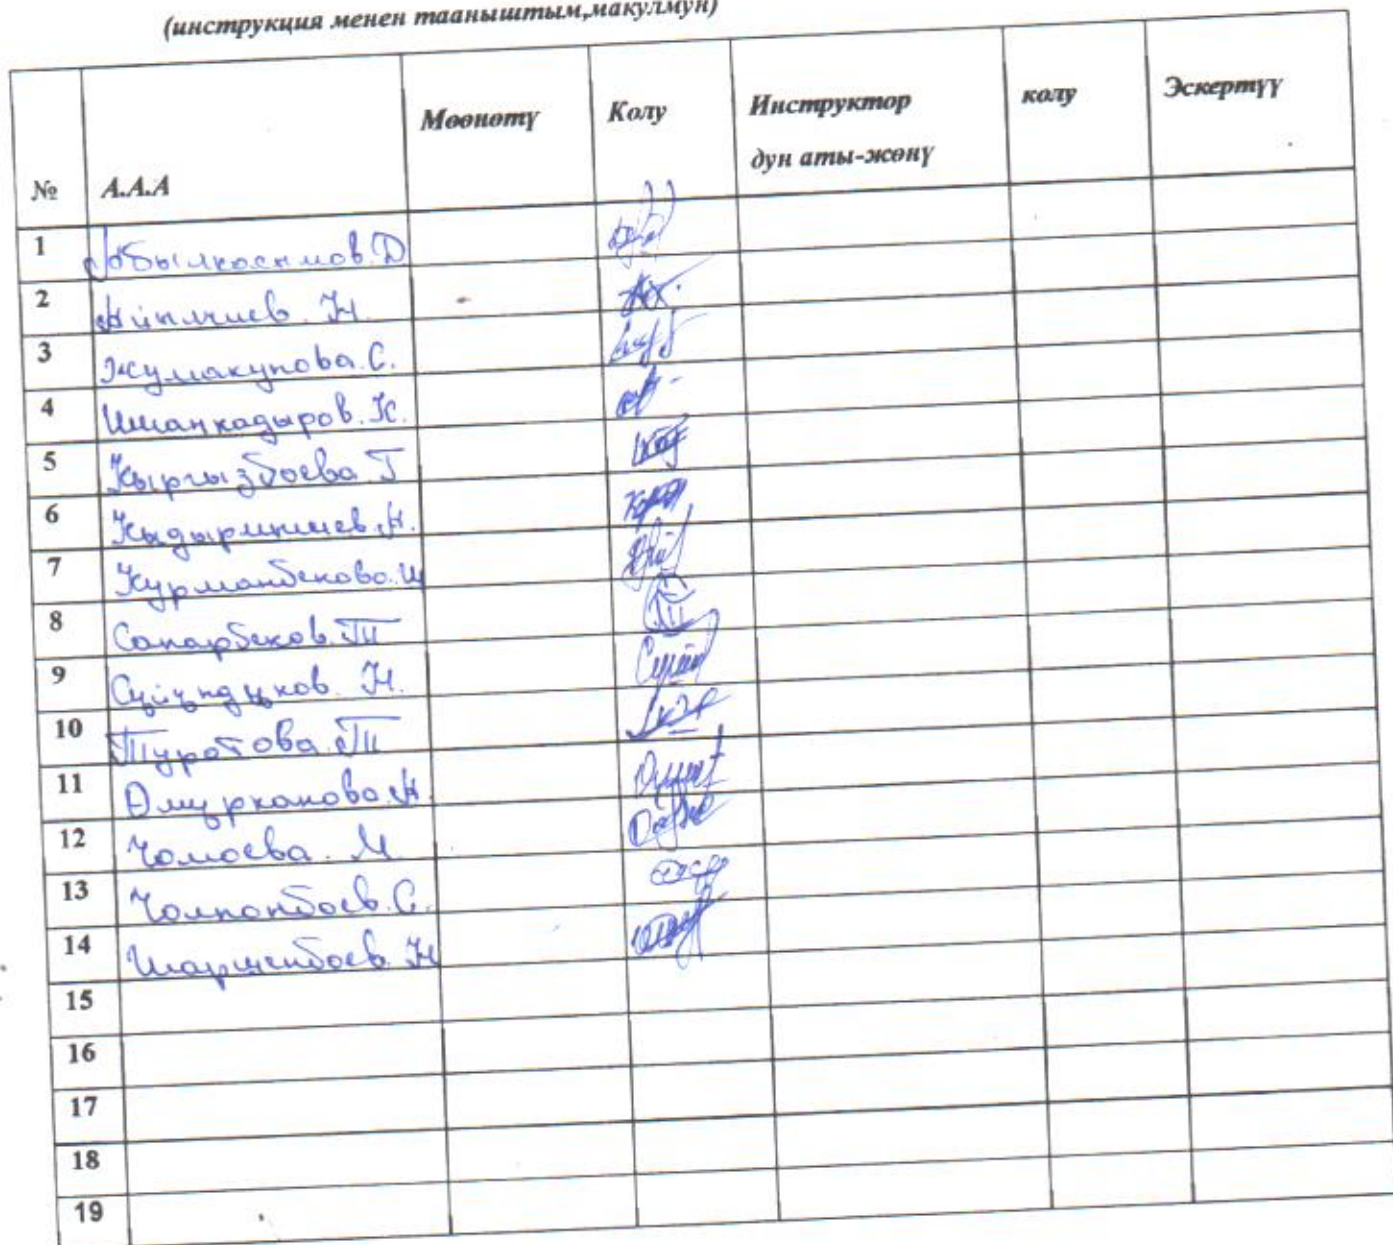 (инструкция менен тааныштым,макулмун)
№ А.А.А Мөөнөтү Колу Инструктор дун аты-жөнү колу Эскертүү
1 Абылкасымов.Д
2
3 Жумакунова.С.
4 Ишанкадыров.К.
5 Кыргызбаева Г
6 Кыдырмышев.А.
7 Курманбекова.Ш
8 Сапарбеков.Т
9 Сүйүндүков. Н.
10 Туратова.Т
11 Өмүрканова.А.
12 Чомоева. М
13 Чолпонбаев.С.
14 Шаршенбаев.Н
15
16
17
18
19